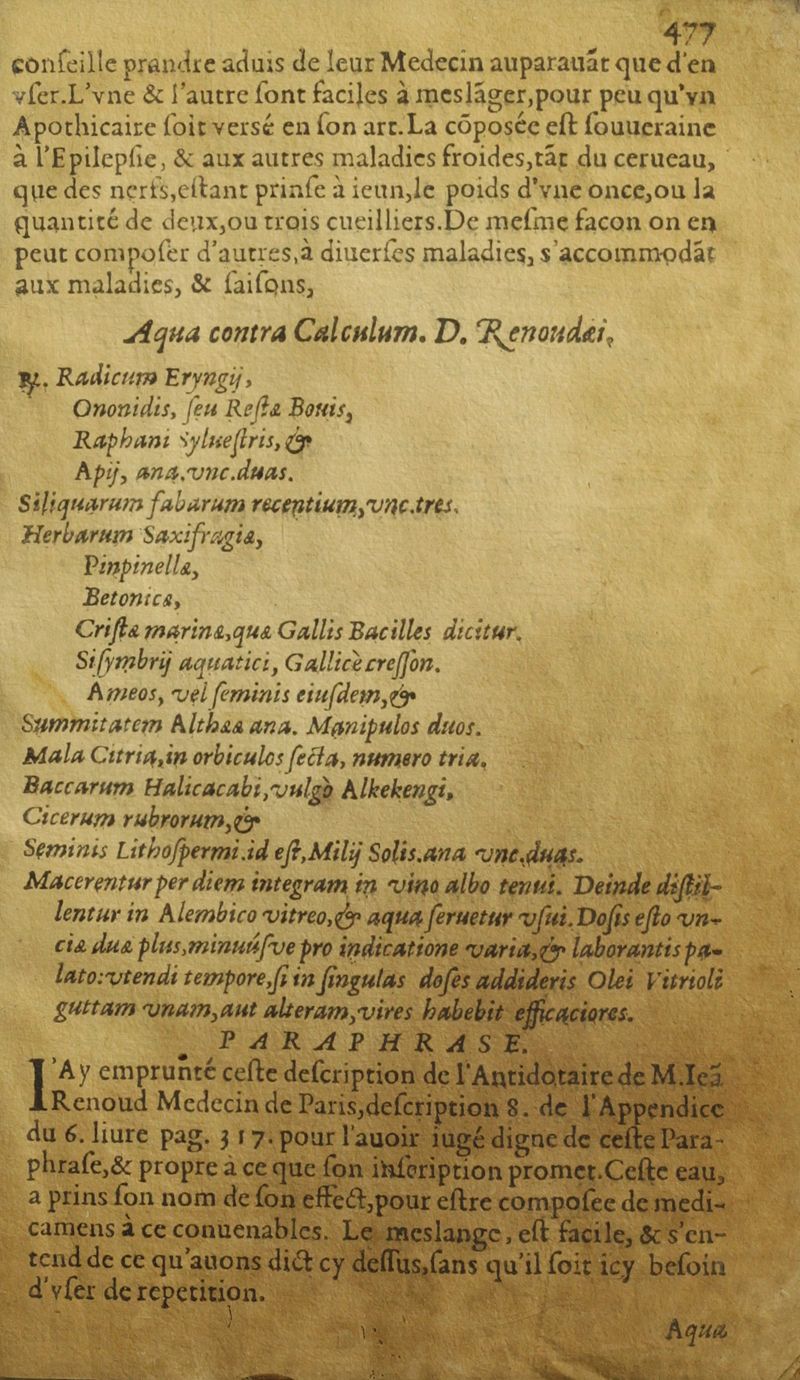 477
conſeille prandre aduis de leur Medecin auparauāt que d'en
vſer.L'vne & l'autre ſont faciles à meslāger,pour peu qu'vn
Apothicaire ſoit versé en ſon art.La cōposée eſt ſouueraine
à l'Epilepſie, & aux autres maladies froides,tāt du cerueau,
que des nerfs,eſtant prinſe à ieun,le poids d'vne once,ou la
quantité de deux,ou trois cueilliers.De meſme facon on en
peut compoſer d'autres,à diuerſes maladies, s'accommodāt
aux maladies, & ſaiſons,
Aqua contra Calculum. D. Renoudæi,
℞. Radicum Eryngij,
Ononidis, ſeu Reſtæ Bouis,
Raphani Sylueſtris, &
Apij, ana.vnc.duas.
Siliquarum fabarum recentium,vnc.tres.
Herbarum Saxifragiæ,
Pinpinellæ,
Betonicæ,
Criſtæ marinæ,quæ Gallis Bacilles dicitur.
Siſymbrij aquatici, Gallicè creſſon.
Ameos, vel ſeminis eiuſdem,&
Summitatem Althææ ana. Manipulos duos.
Mala Citria,in orbiculos ſecta, numero tria.
Baccarum Halicacabi,vulgò Alkekengi,
Cicerum rubrorum,&
Seminis Lithoſpermi.id eſt,Milij Solis.ana vnc.duas.
Macerentur per diem integram in vino albo tenui. Deinde diſtil-
lentur in Alembico vitreo,& aqua ſeruetur vſui.Doſis eſto vn-
ciæ duæ plus,minuúſve pro indicatione varia,& laborantis pa-
lato:vtendi tempore,ſi in ſingulas doſes addideris Olei Vitrioli
guttam vnam,aut alteram,vires habebit efficaciores.
PARAPHRASE.
I'Ay emprunté ceſte deſcription de l'Antidotaire de M.Ieā
Renoud Medecin de Paris,deſcription 8. de l'Appendice
du 6. liure pag. 317. pour l'auoir iugé digne de ceſte Para-
phraſe,& propre à ce que ſon inſcription promet.Ceſte eau,
a prins ſon nom de ſon effect,pour eſtre compoſee de medi-
camens à ce conuenables. Le meslange, eſt facile, & s'en-
tend de ce qu'auons dict cy deſſus,ſans qu'il ſoit icy beſoin
d'vſer de repetition.
Aqua